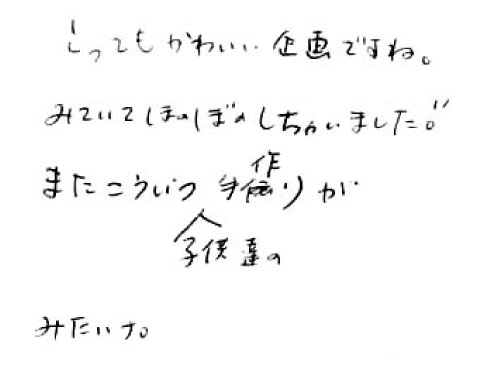 とってもかわいい企画ですね。
みていてほのぼのしちゃいました。"
またこういう手作りが
子供達の
みたいナ。